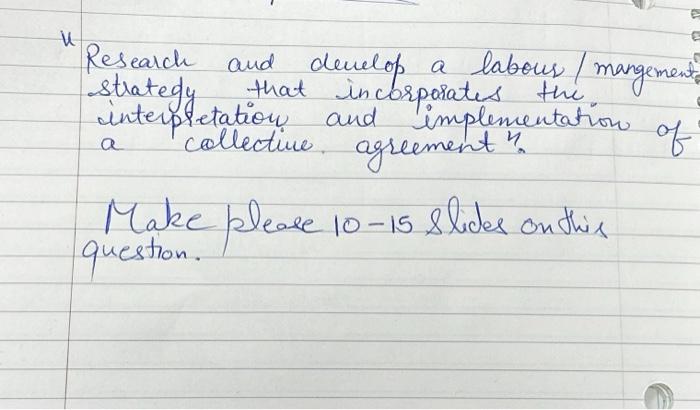 "Research and develop a labour / mangement
strategy that incorporates the
interpretation and implementation of
a collective agreement".
Make please 10-15 slides on this
question.